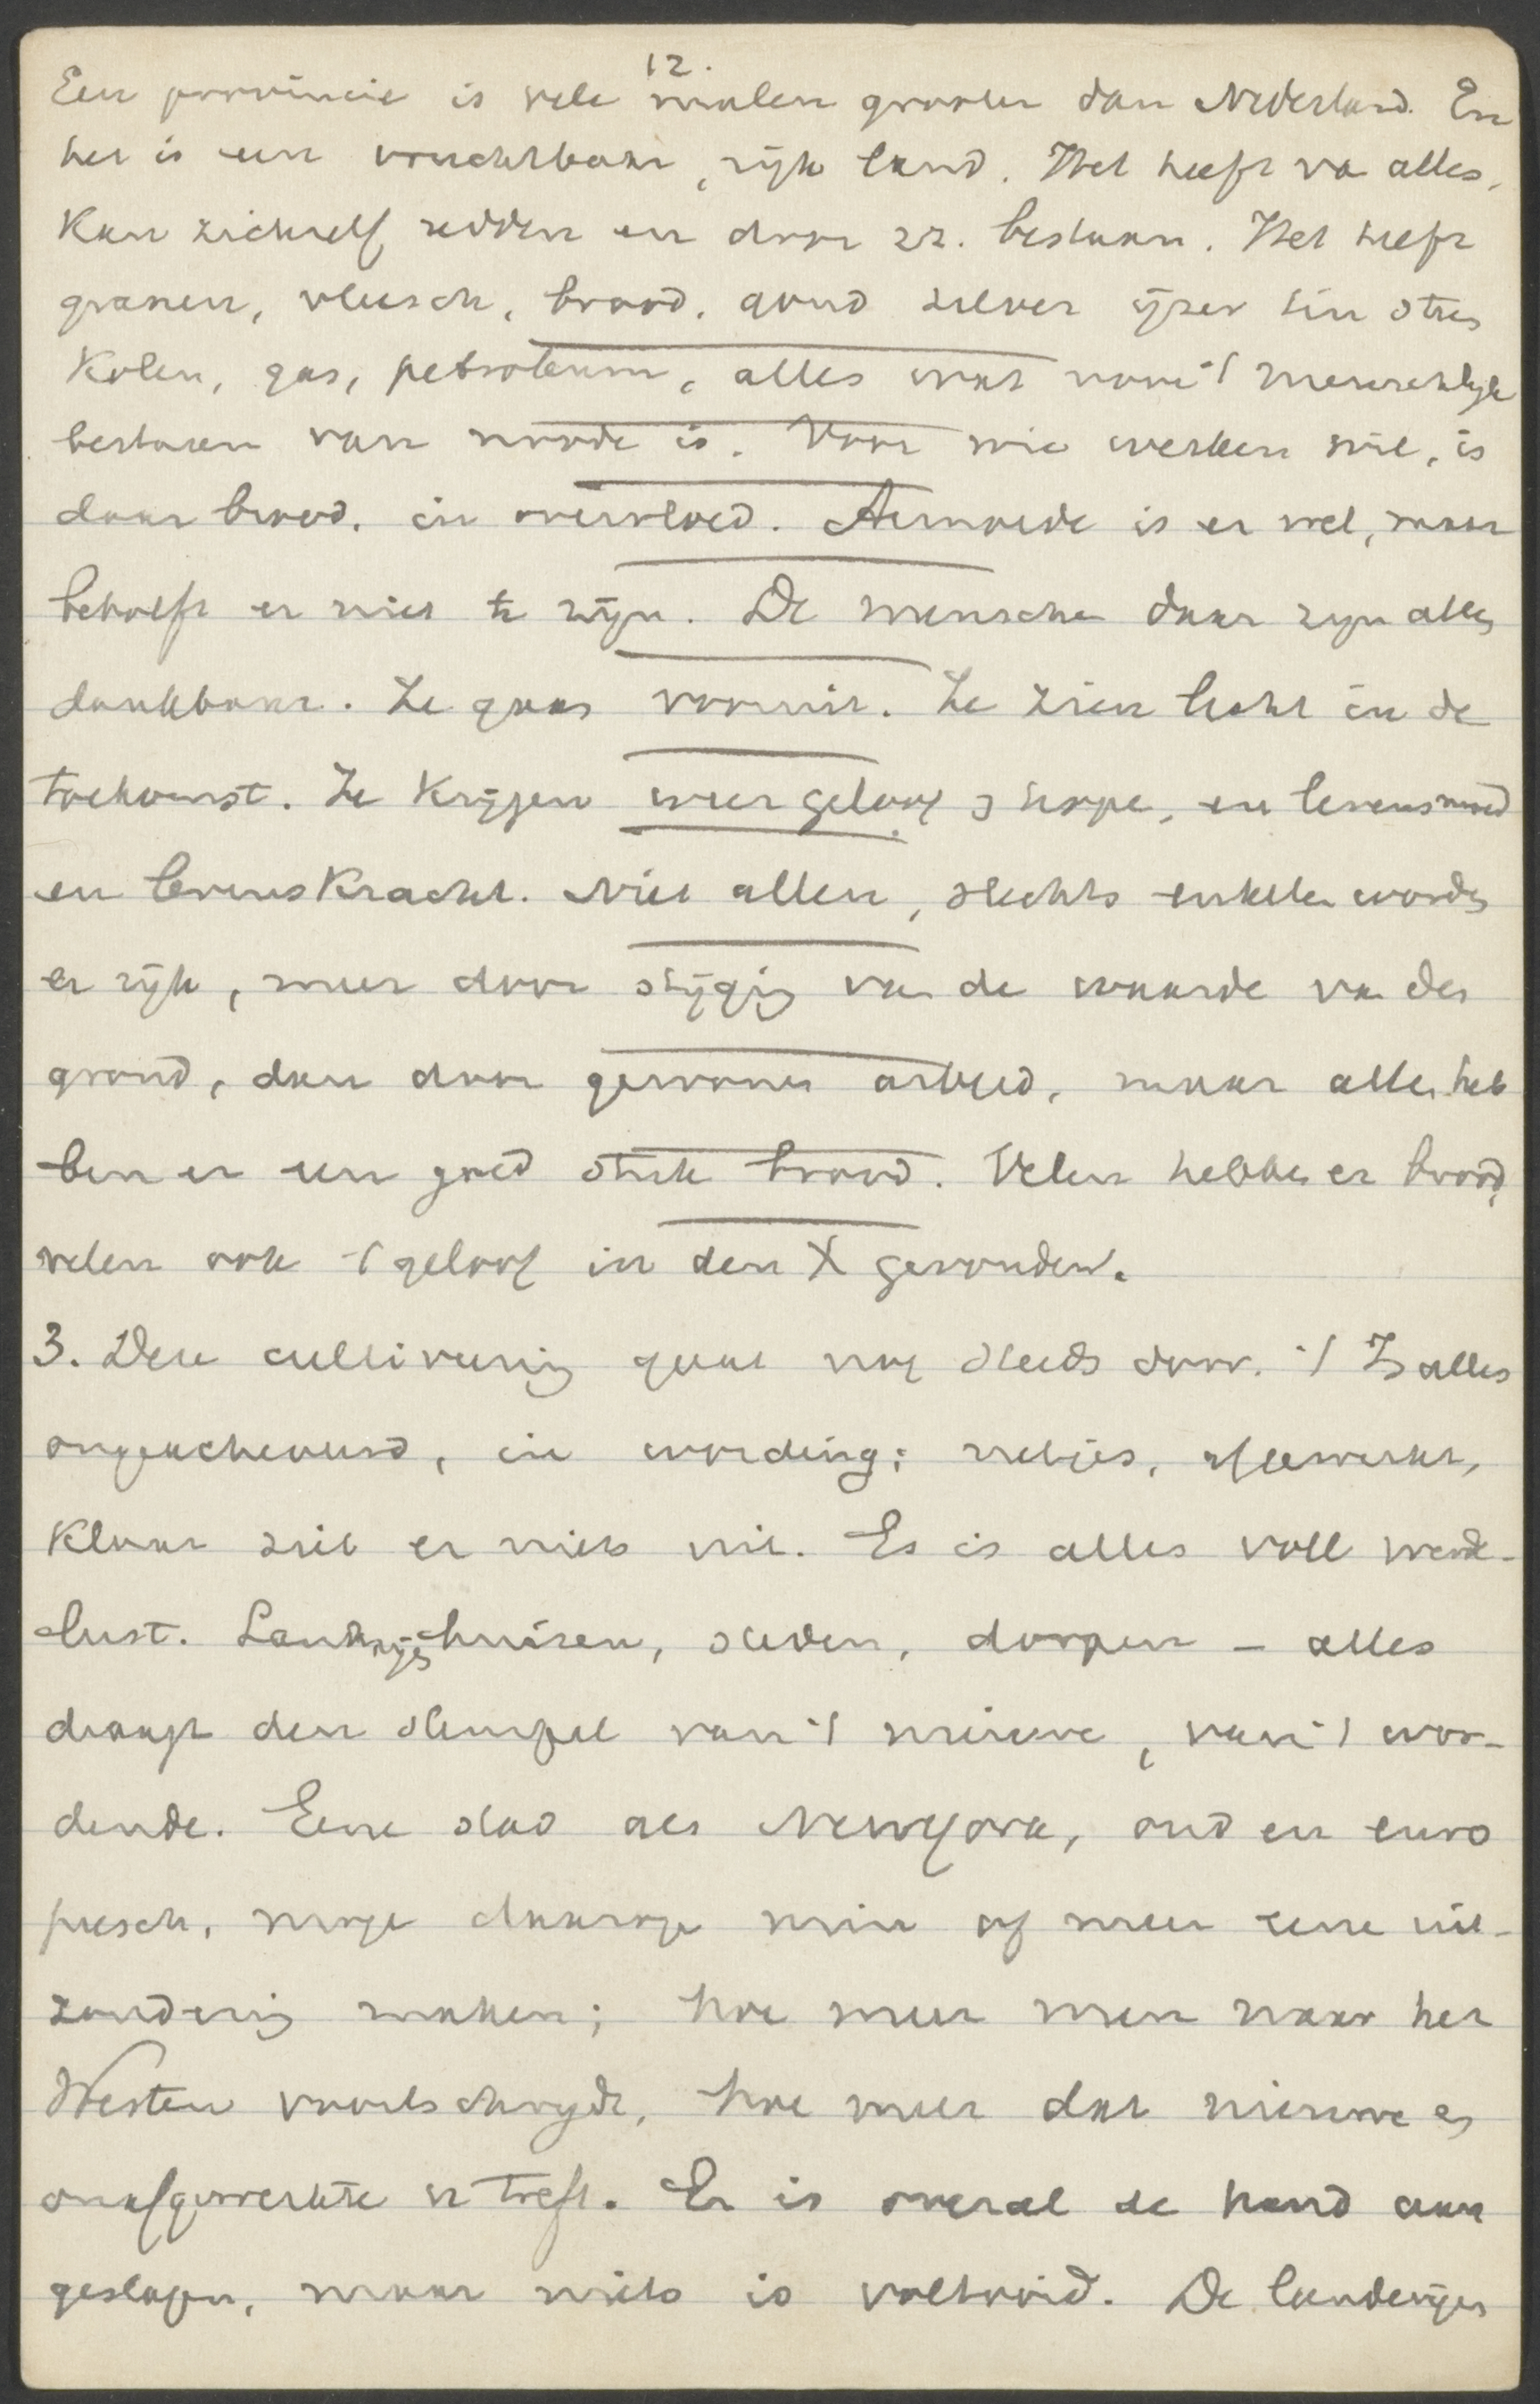 12.
Een provincie is vele malen grooter dan Nederland. En
het is een vruchtbaar, rijk land. Het heeft va alles,
kan zichzelf redden en door zz. bestaan. Het heeft
granen, vleesch, brood, goud zilver ijzer tin
kolen, gas, petroleum, alles wat voor 't menschelijk
bestaan van noode is. Voor wie werken wil, is
daar brood, in overvloed. Armoede is er wel, maar
behoeft er niet te zijn. De mensche daar zijn alles
dankbaar. Ze gaan vooruit. Ze zien licht in de
toekomst. Ze krijgen weer geloof en hope, en levensmoed
en levenskracht. Niet allen, slechts enkelen worden
er rijk, meer door stijging van de waarde van den
grond, dan door gewonen arbeid, maar allen heb
ben er een goed stuk brood. Velen hebben er brood,
velen ook 't geloof in den X gevonden.
3. Deze cultiveering gaat nog steeds door. 't Is alles
ongeacheveerd, in wording; netjes, afgewerkt,
klaar ziet er niets uit. Es is alles voll werde-
lust. Landhuizen, steden, dorpen – alles
draagt den stempel van 't nieuwe, van 't wor-
dende. Eene stad als NewYork, oud en euro
peesch, moge daarop min of meer eene uit-
zondering maken; hoe meer men naar het
Westen voortschrijdt, hoe meer dat nieuwe en
onafgewerkte u treft. Er is overal de hand aan
geslagen, maar niets is voltooid. De landerijen